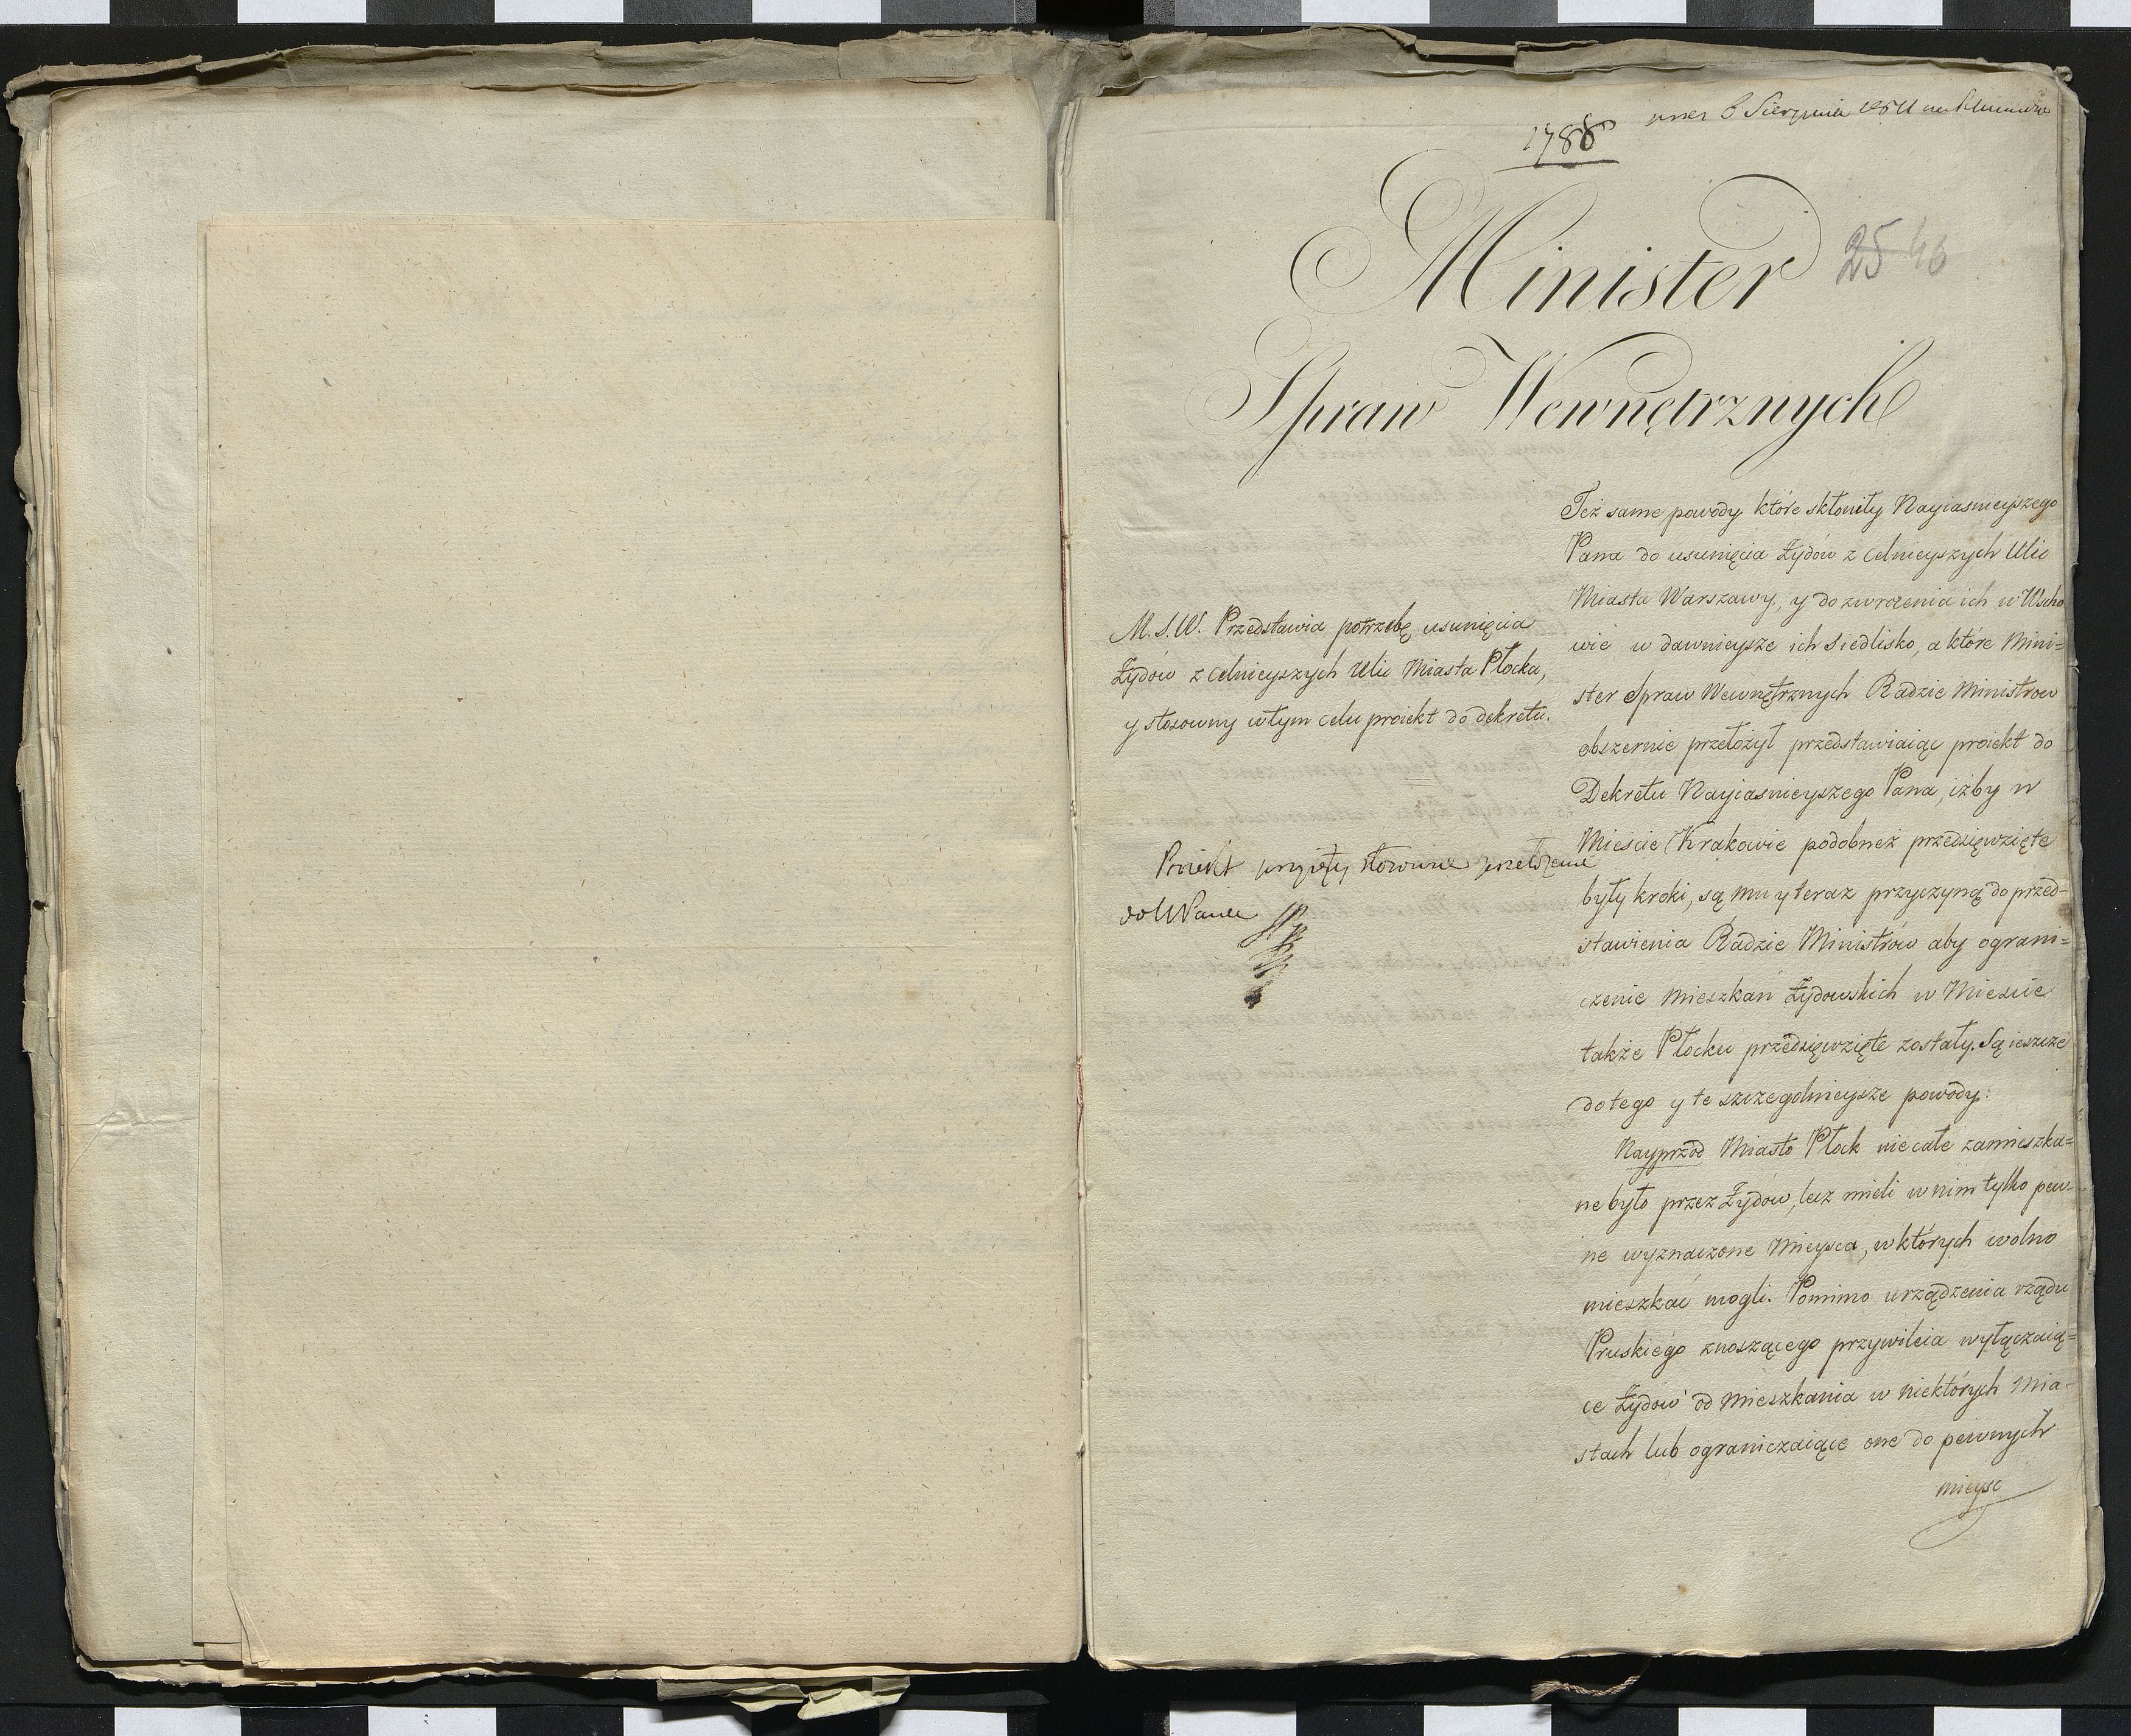 1788
6 Sierpnia 1811
25 46
Minister
Spraw Wewnętrznych
M. S. W. Przedstawia potrzebę usunięcia
Żydów z celnieyszych Ulic Miasta Płocka,
y stosowny w tym celu proiekt do dekretu.
Proiekt przyięty stownie
Też same powody które skłoniły Nayiasnieyszego
Pana do usunięcia Żydów z celnieyszych Ulic
Miasta Warszawy, y do zwrócenia ich w Wscho
wie w dawnieysze ich siedlisko, a które Mini=
ster Spraw Wewnętrznych Radzie Ministrow
obszernie przełożył przedstawiaiąc proiekt do
Dekretu Nayiasnieyszego Pana, iżby w
Mieście Krakowie podobneż przedsięwzięte
były kroki, są mu y teraz przyczyną do przed-
stawienia Radzie Ministrów aby ograni=
czenie mieszkań Żydowskich w Miescie
także Płocku przedsięwzięte zostały. Są ieszcze
do tego y te szczegolnieysze powody:
Nayprzód Miasto Płock nie całe zamieszka=
ne było przez Żydów, lecz mieli w nim tylko pew-
ne wyznaczone Mieysca, w których wolno
mieszkać mogli. Pomimo urządzenia rządu
Pruskiego znoszącego przywileia wyłączaią=
ce Żydów od mieszkania w niektórych Mia-
stach lub ograniczaiące one do pewnych
mieysc